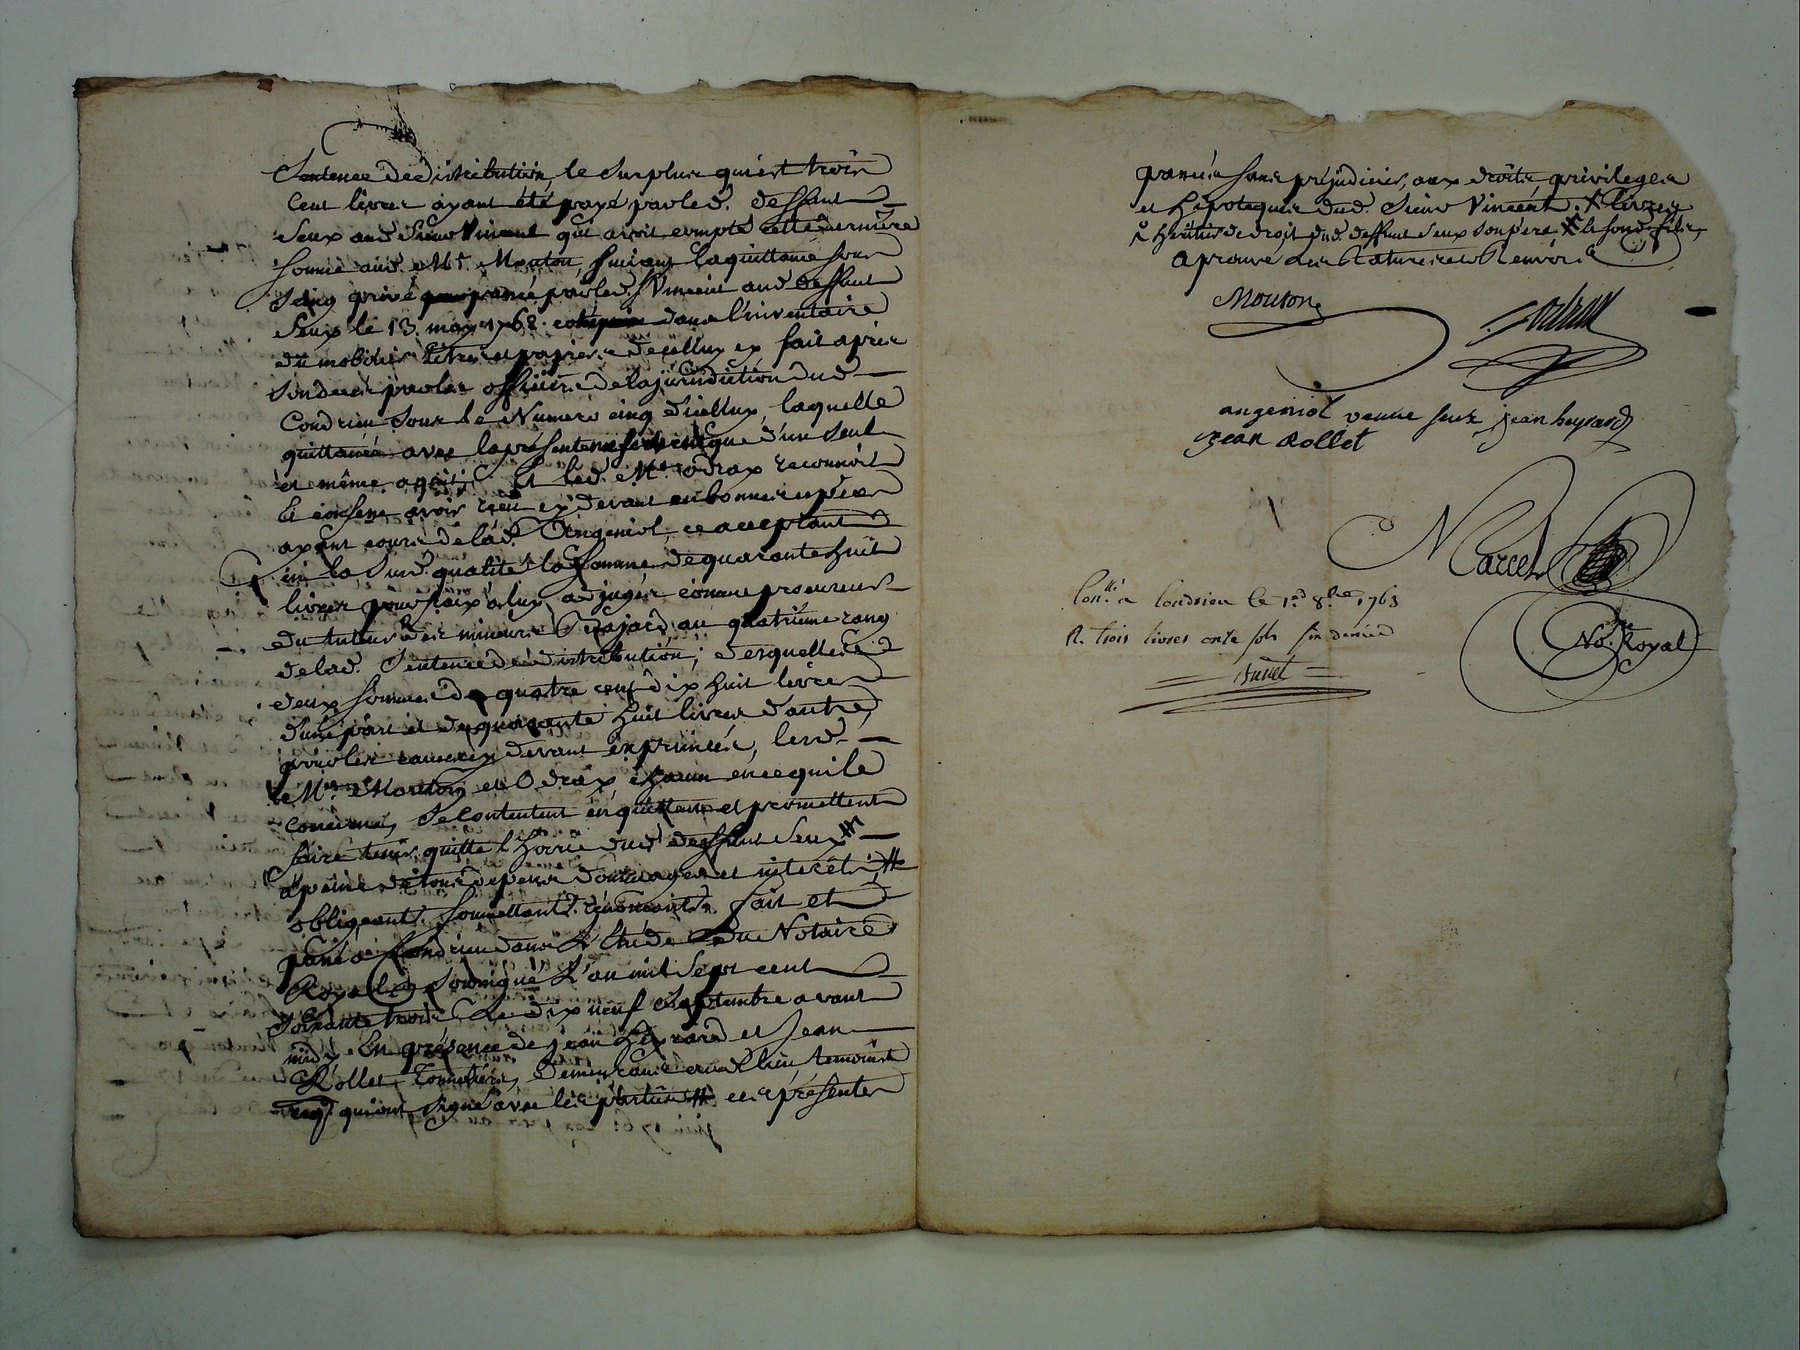 Sentence de distribution, le surplus qui est trois
cent livres ayant été payé par led. deffunt
Seux aud. Sieur Vincent qui avoit compté cette derniere
somme aud. Mt. Mouton, suivant la quittance sous
seing privé passée par led. S. Vincent aud. deffunt
Seux le 13. may 1762. dans l'inventaire
du mobilier titres et papiers d'icelluy fait après
son deces par les officiers de la jurisdiction dud.
Condrieu sous le Numero cinq d'icelluy, laquelle
quittance avec la présente ne que d'un seul
et même acquit; Et led. Me. Odrax reconnoit
Et confesse avoir reçu cy devant en bonnes espèces
ayant cours de lad. Angeniol, ce acceptant
en la susd. qualité la somme de quarante huit
livres pour fraix à luy adjugés comme procureur
du tuteur des mineurs au quatrieme rang
de lad. Sentence de distribution; desquelles
deux sommes de quatre cent dix huit livres
d'une part et de quarante huit livres d'autre
pour les causes cy devant exprimées, lesd.
Mes. Mouton et Odrax chacun en ce qui le
concerne, se contentent en quittent et promettent
faire tenir quitte l'hoirie dud. deffunt Seux
à peine de tous depens dommages et interêts;
obligeants. soumettants. renonçants. fait et
passé à Condrieu dans l'Etude du Notaire
Royal soussigné L'an mil sept cent
soixante trois Le dix neuf Septembre avant
midy En présence de jean heyrard et Jean
Rollet Tonneliers, demeurants aud. lieu, temoins
req. qui ont signé avec les parties ces présentes
passées sans préjudicier, aux droits privileges
et hipoteques dud. Sieur Vincent. livres
heritier de droit dud. deffunt Seux son père,
aprouvé les ratures et Renvois
Mouton
Odrax
angeniol veuve seux jean heyrard
jean Rollet
Marcel
Nore. Royal
Conllé. a Condrieu le 1er. 8bre. 1763
R. trois livres onze sols six deniers